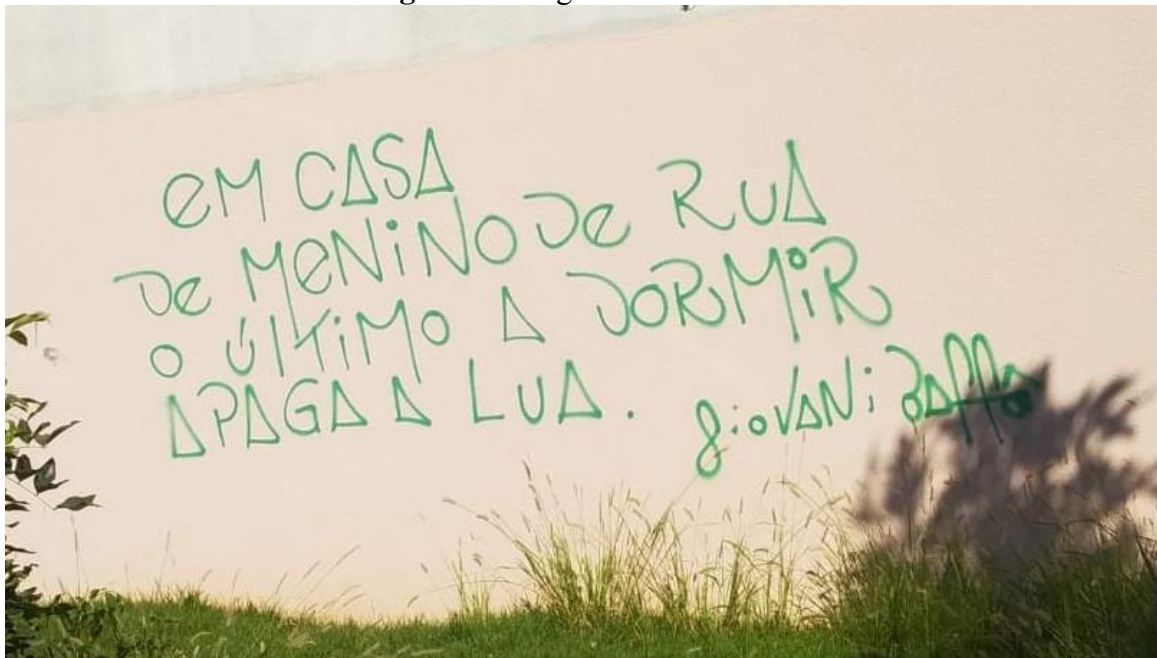 EM CASA
DE MENINO DE RUA
O ÚLTIMO A DORMIR
APAGA A LUA.
GIOVANI BAFFO